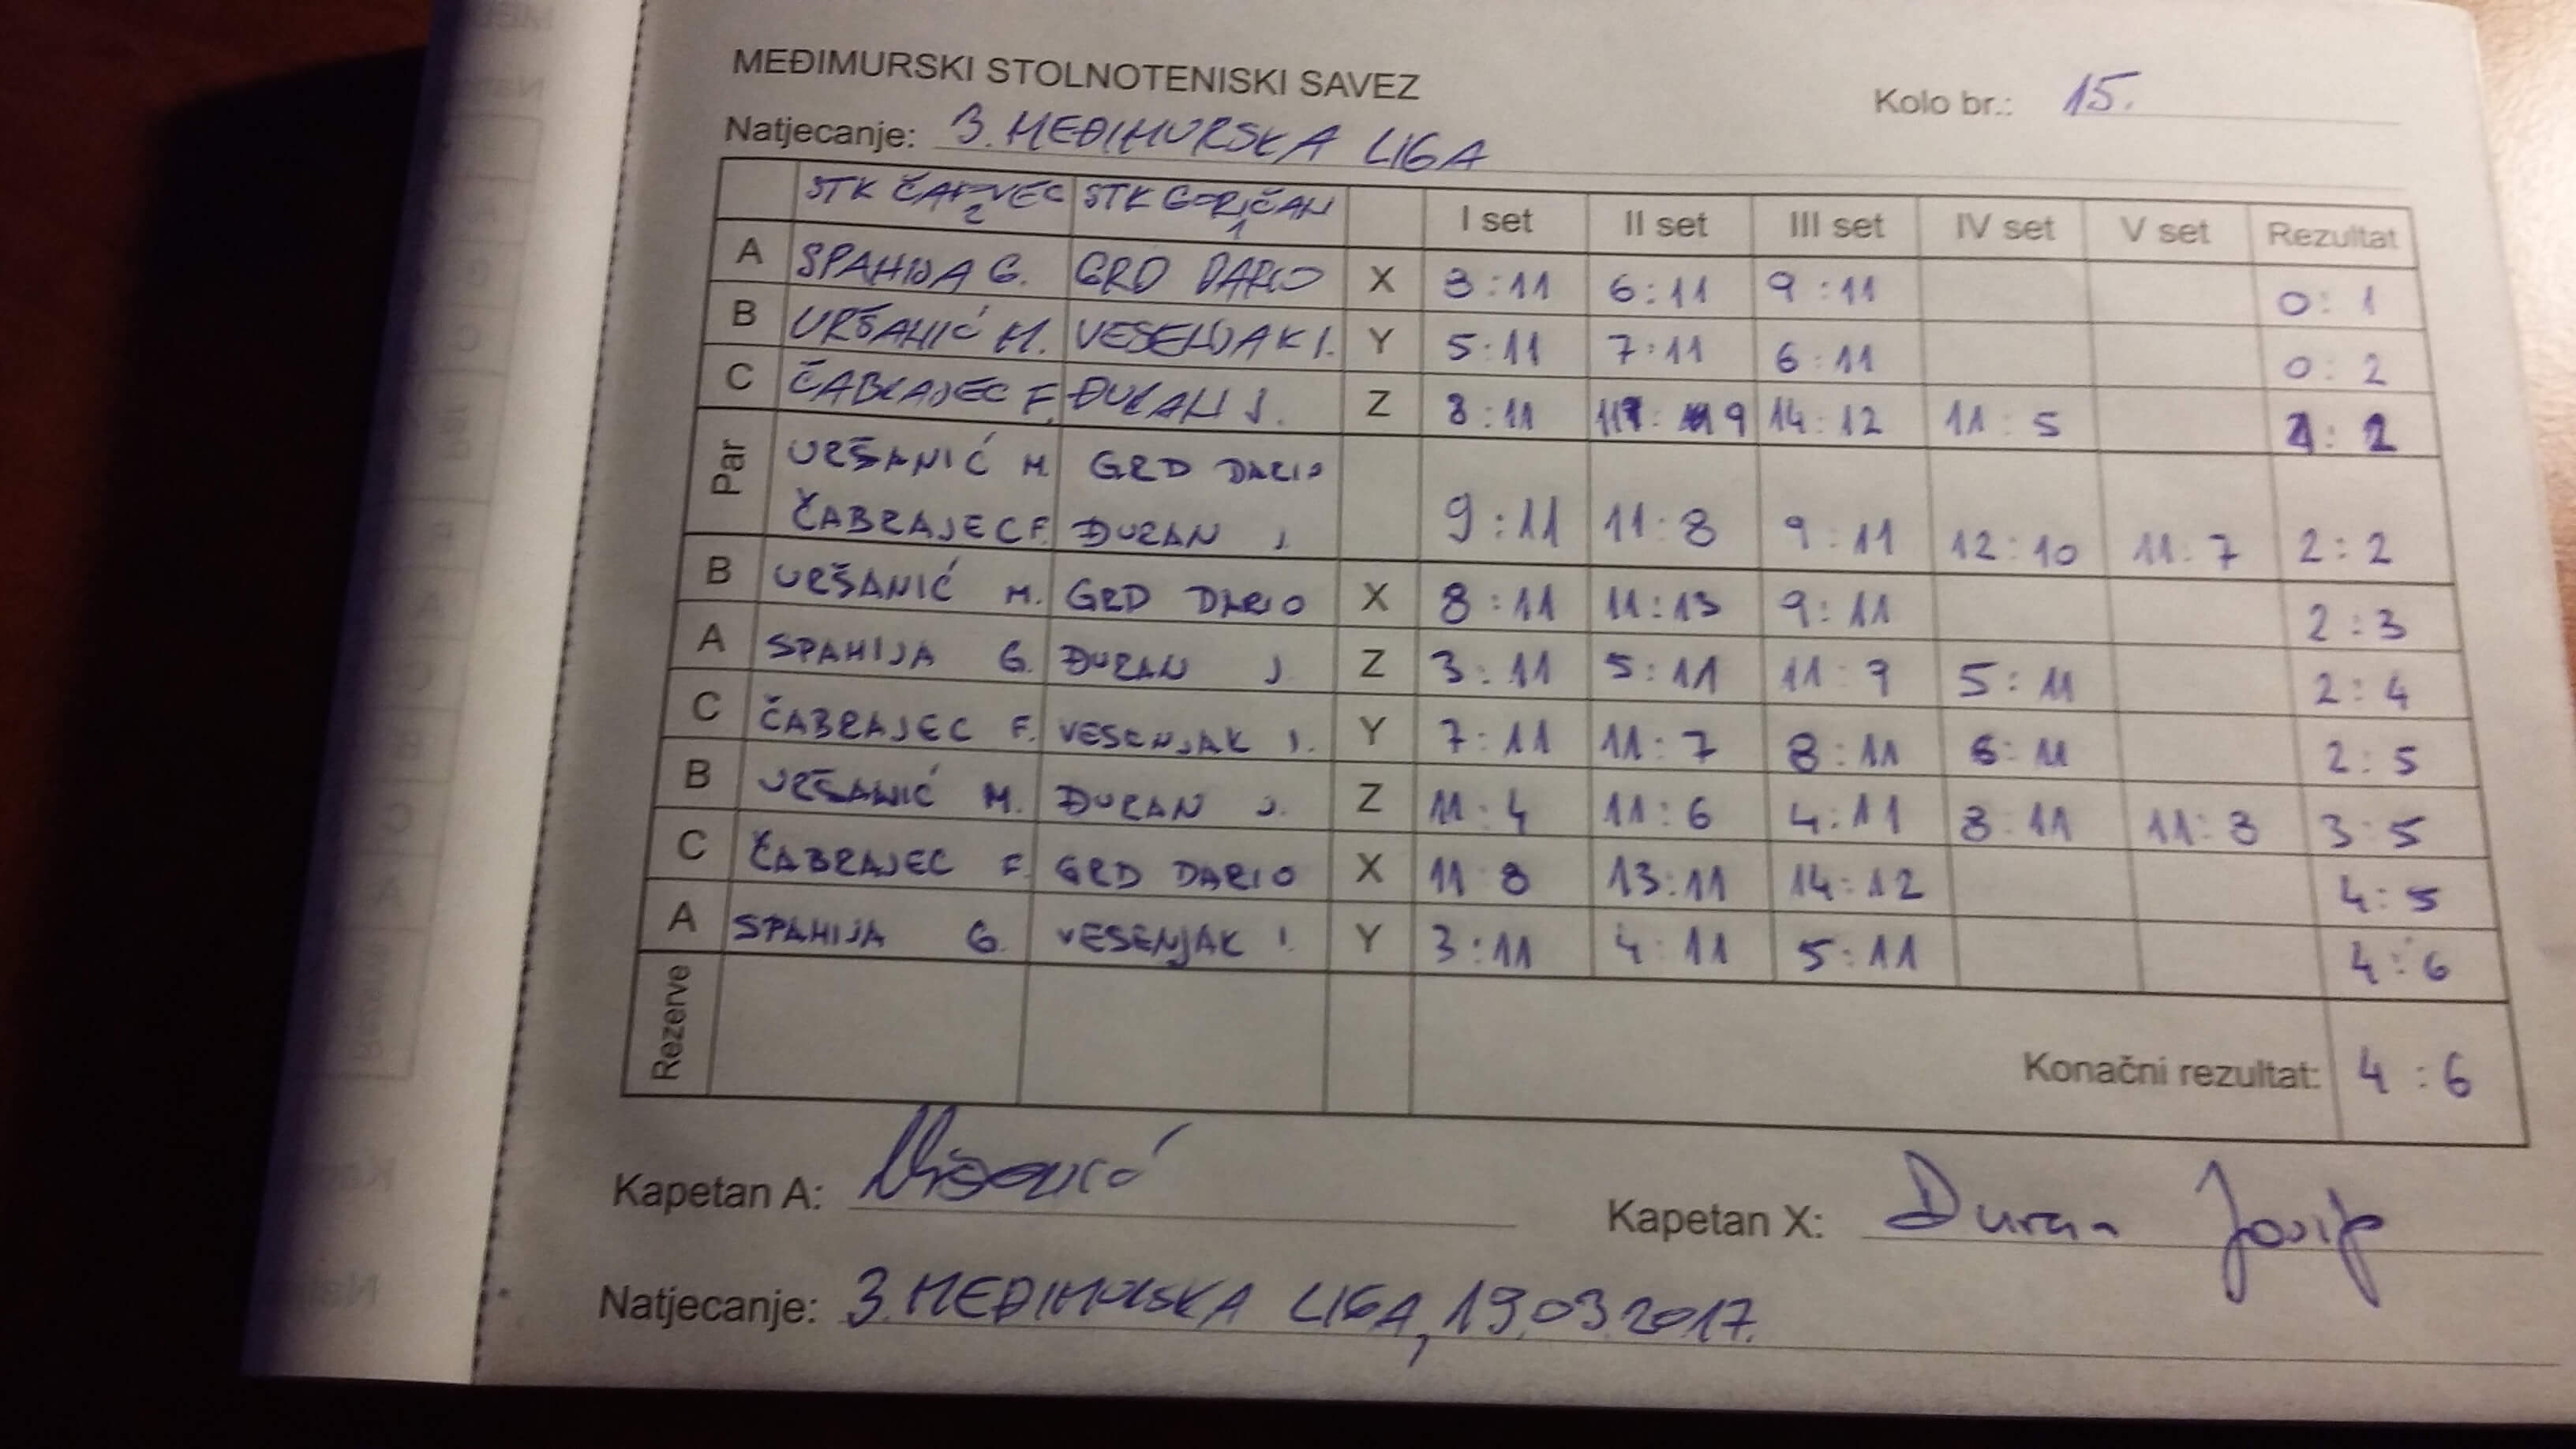 MEĐIMURSKI STOLNOTENISKI SAVEZ
Kolo br.: 15.
Natjecanje: 3. MEĐIMURSKA LIGA
STK ČAKOVEC 2 STK GORIČAN 1 I set II set III set IV set V set Rezultat
A SPAHIJA G. GRD DARIO X 8:11 6:11 9:11 0:1
B URŠANIĆ M. VESENJAK I. Y 5:11 7:11 6:11 0:2
C ČABRAJEC F. ĐURAN J. Z 8:11 11:9 14:12 11:5 1:2
Par URŠANIĆ M. GRD DARIO
ČABRAJEC F. ĐURAN J. 9:11 11:8 9:11 12:10 11:7 2:2
B URŠANIĆ M. GRD DARIO X 8:11 11:13 9:11 2:3
A SPAHIJA G. ĐURAN J Z 3:11 5:11 11:9 5:11 2:4
C ČABRAJEC F. VESENJAK I. Y 7:11 11:7 8:11 6:11 2:5
B URŠANIĆ M. ĐURAN J. Z 11:4 11:6 4:11 8:11 11:8 3:5
C ČABRAJEC F. GRD DARIO X 11:8 13:11 14:12 4:5
A SPAHIJA G. VESENJAK I. Y 3:11 4:11 5:11 4:6
Rezerve
Konačni rezultat: 4:6
Kapetan A: Uršanić
Kapetan X: Đuran Josip
Natjecanje: 3. MEĐIMURSKA LIGA, 19.03.2017.